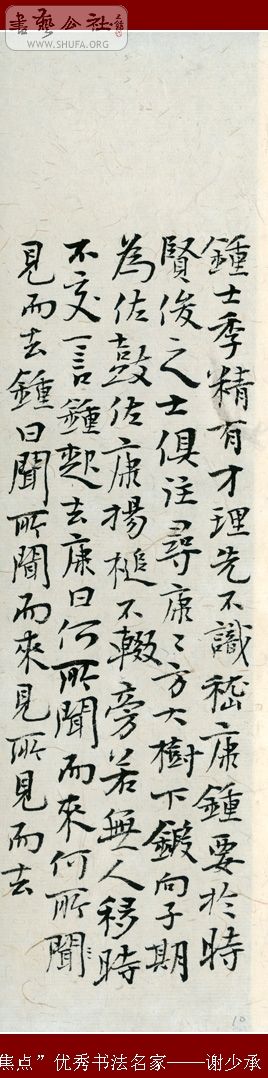 書藝公社
WWW.SHUFA.ORG
鍾士季精有才理先不識嵇康鍾要於時
賢俊之士俱往尋康〻方大樹下鍛向子期
為佐鼓佐康揚槌不輟旁若無人移時
不交一言鍾起去康曰何所聞而來何所聞
見而去鍾曰聞所聞而來見所見而去
10
焦点”优秀书法名家——谢少承